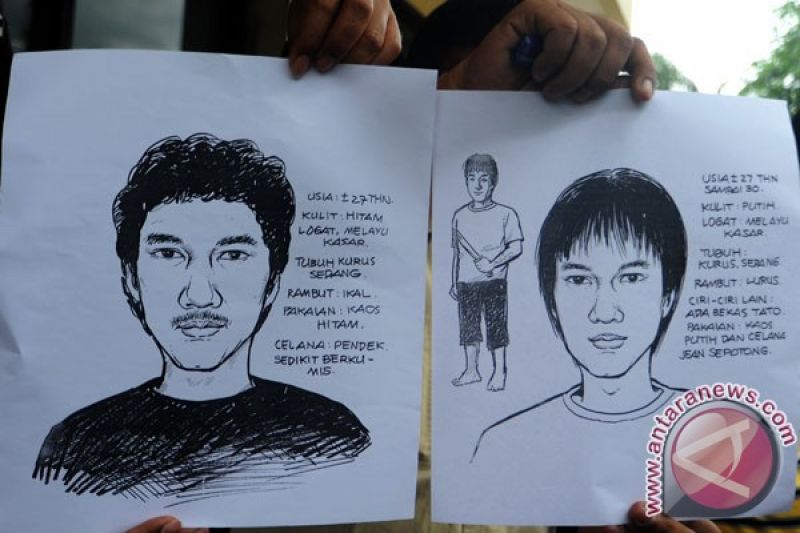 USIA : ± 27 THN.
KULIT : HITAM
LOGAT, MELAYU
KASAR.
TUBUH KURUS
SEDANG.
RAMBUT : IKAL.
PAKAIAN : KAOS
HITAM.
CELANA : PENDEK.
SEDIKIT BERKU-
MIS.
USIA ± 27 THN
SAMPAI 30.
KULIT : PUTIH.
LOGAT : MELAYU
KASAR.
TUBUH :
KURUS, SEDANG
RAMBUT : LURUS.
CIRI-CIRI LAIN :
ADA BEKAS TATO.
PAKAIAN : KAOS
PUTIH DAN CELANA
JEAN SEPOTONG.
www.antaranews.com